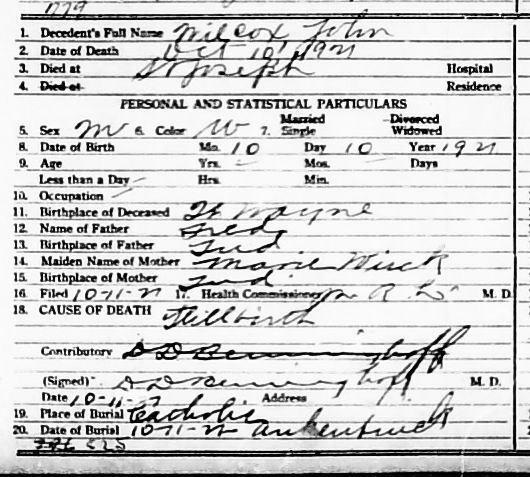 1779
1. Decedent's Full Name Wilcox John
2. Date of Death Oct 10, 1921
3. Died at St Joseph Hospital
4. Died at Residence
PERSONAL AND STATISTICAL PARTICULARS
5. Sex M 6. Color W 7. Married Single Divorced Widowed
8. Date of Birth Mo. 10 Day 10 Year 1921
9. Age Yrs. Mos. Days
Less than a Day Hrs. Min.
10. Occupation
11. Birthplace of Deceased Ft Wayne
12. Name of Father Fred
13. Birthplace of Father Ind
14. Maiden Name of Mother Marie
15. Birthplace of Mother Ind
16. Filed 10-11-21 17. Health Commissioner M. D.
18. CAUSE OF DEATH Stillbirth
Contributory
(Signed) M. D.
Date 10-11-21 Address
19. Place of Burial Catholic
20. Date of Burial 10-11-21